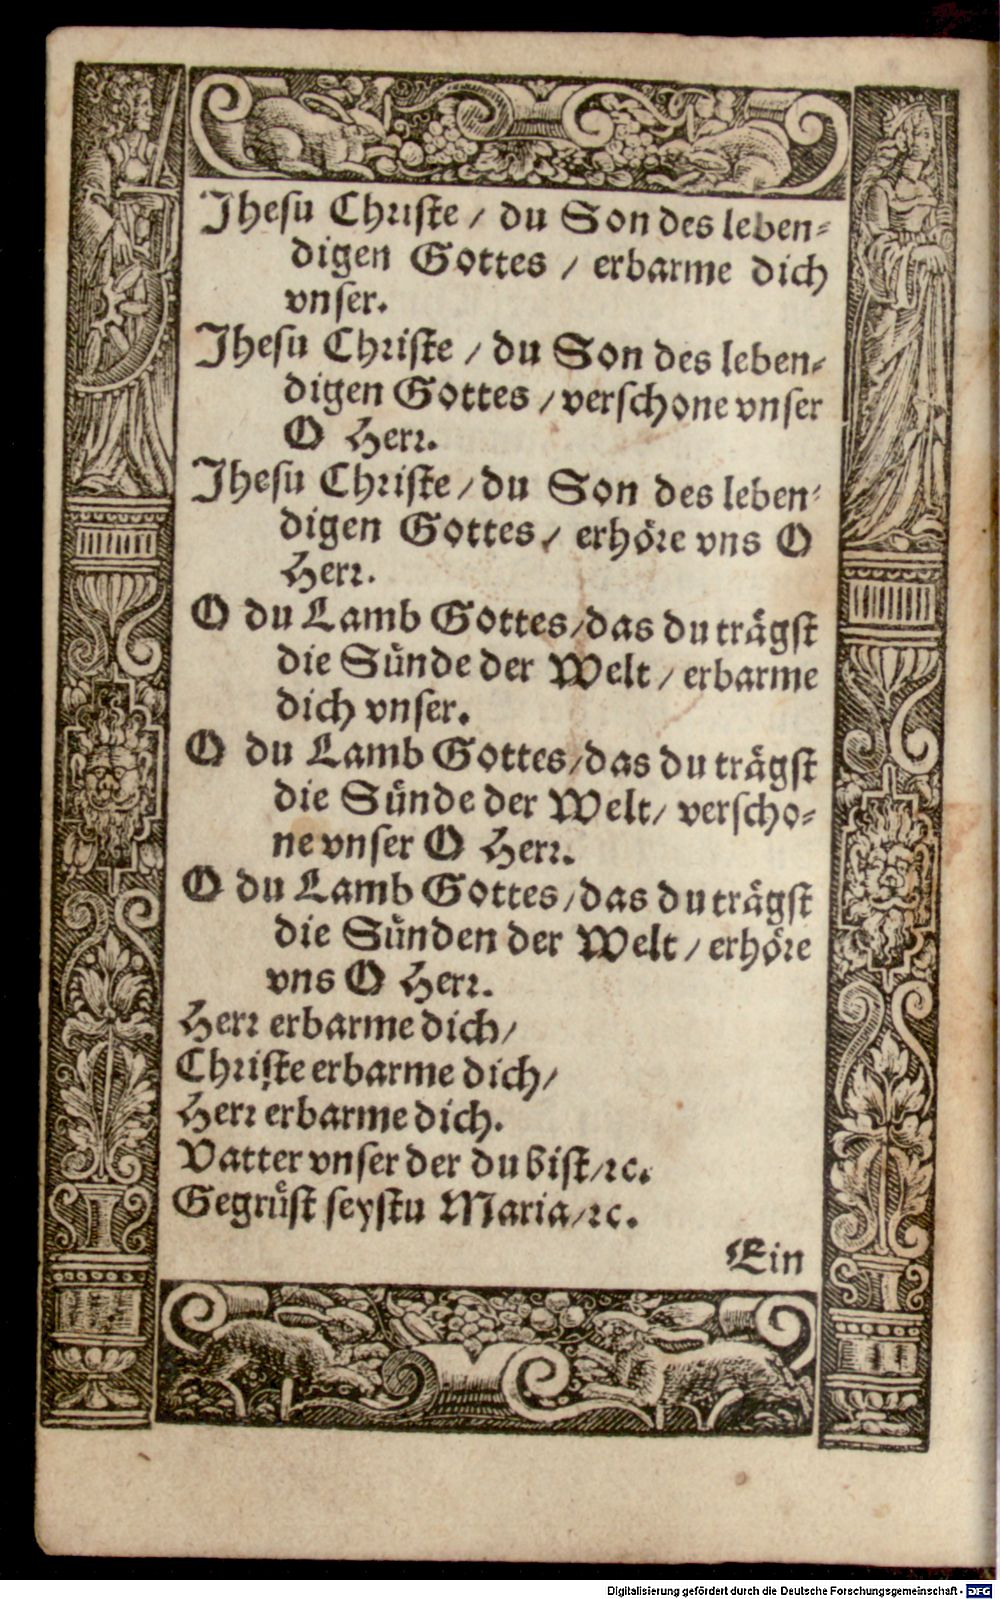 Jhesu Christe / du Son des leben-
digen Gottes / erbarme dich
vnser.
Jhesu Christe / du Son des leben-
digen Gottes / verschone vnser
O Herr.
Jhesu Christe / du Son des leben-
digen Gottes / erhöre vns O
Herr.
O du Lamb Gottes / das du trägst
die Sünde der Welt / erbarme
dich vnser.
O du Lamb Gottes / das du trägst
die Sünde der Welt / verscho-
ne vnser O Herr.
O du Lamb Gottes / das du trägst
die Sünden der Welt / erhöre
vns O Herr.
Herr erbarme dich /
Christe erbarme dich /
Herr erbarme dich.
Vatter vnser der du bist / ꝛc.
Gegrüst seystu Maria / ꝛc.
Ein
Digitalisierung gefördert durch die Deutsche Forschungsgemeinschaft - DFG